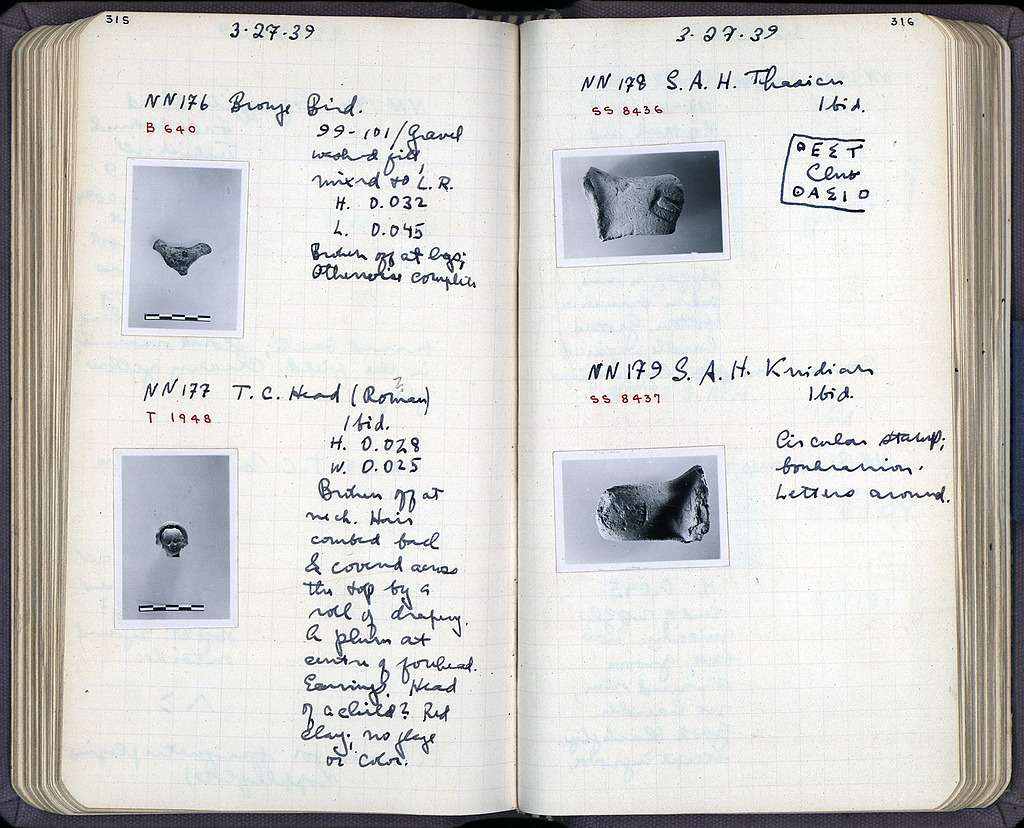 315
3-27-39
NN 176 Bronze Bird.
B 640
99-101/Gravel
washed fill,
mixed to L.R.
H. 0.032
L. 0.045
Broken off at legs;
Otherwise complete
NN 177 T.C. Head (Roman)
?
T 1948
Ibid.
H. 0.028
W. 0.025
Broken off at
neck. Hair
combed back
& covered across
the top by a
roll of drapery.
A plum at
centre of forehead.
Earrings. Head
of a child? Red
clay; no glaze
or color.
316
3-27-39
NN 178 S.A.H. Thasian
SS 8436
Ibid.
ΘΑΣΙΟ
NN 179 S.A.H. Knidian
SS 8437
Ibid.
Circular stamp;
Letters around.